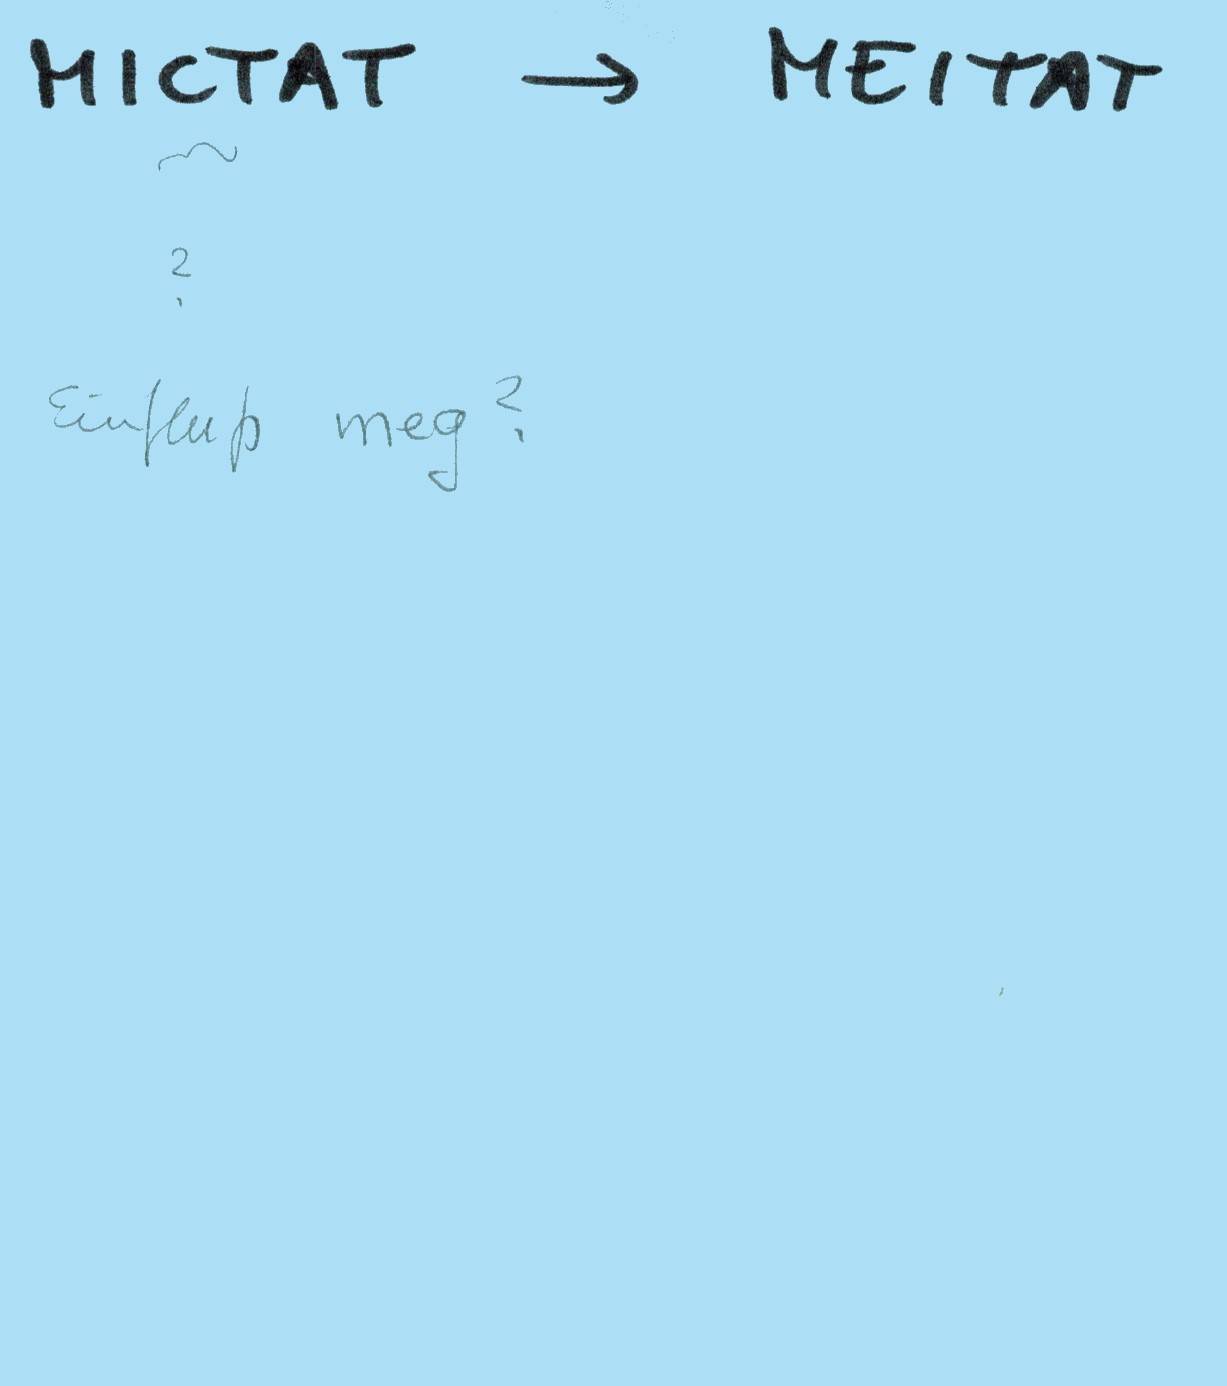 MICTAT → MEITAT
?
Einfluß meg?